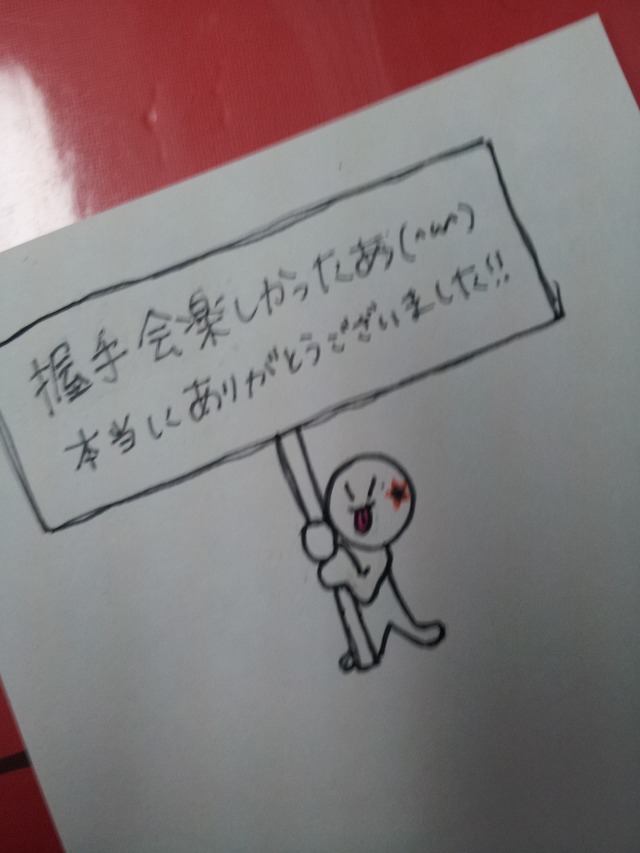 握手会楽しかったあぁ(^ω^)
本当にありがとうございました!!